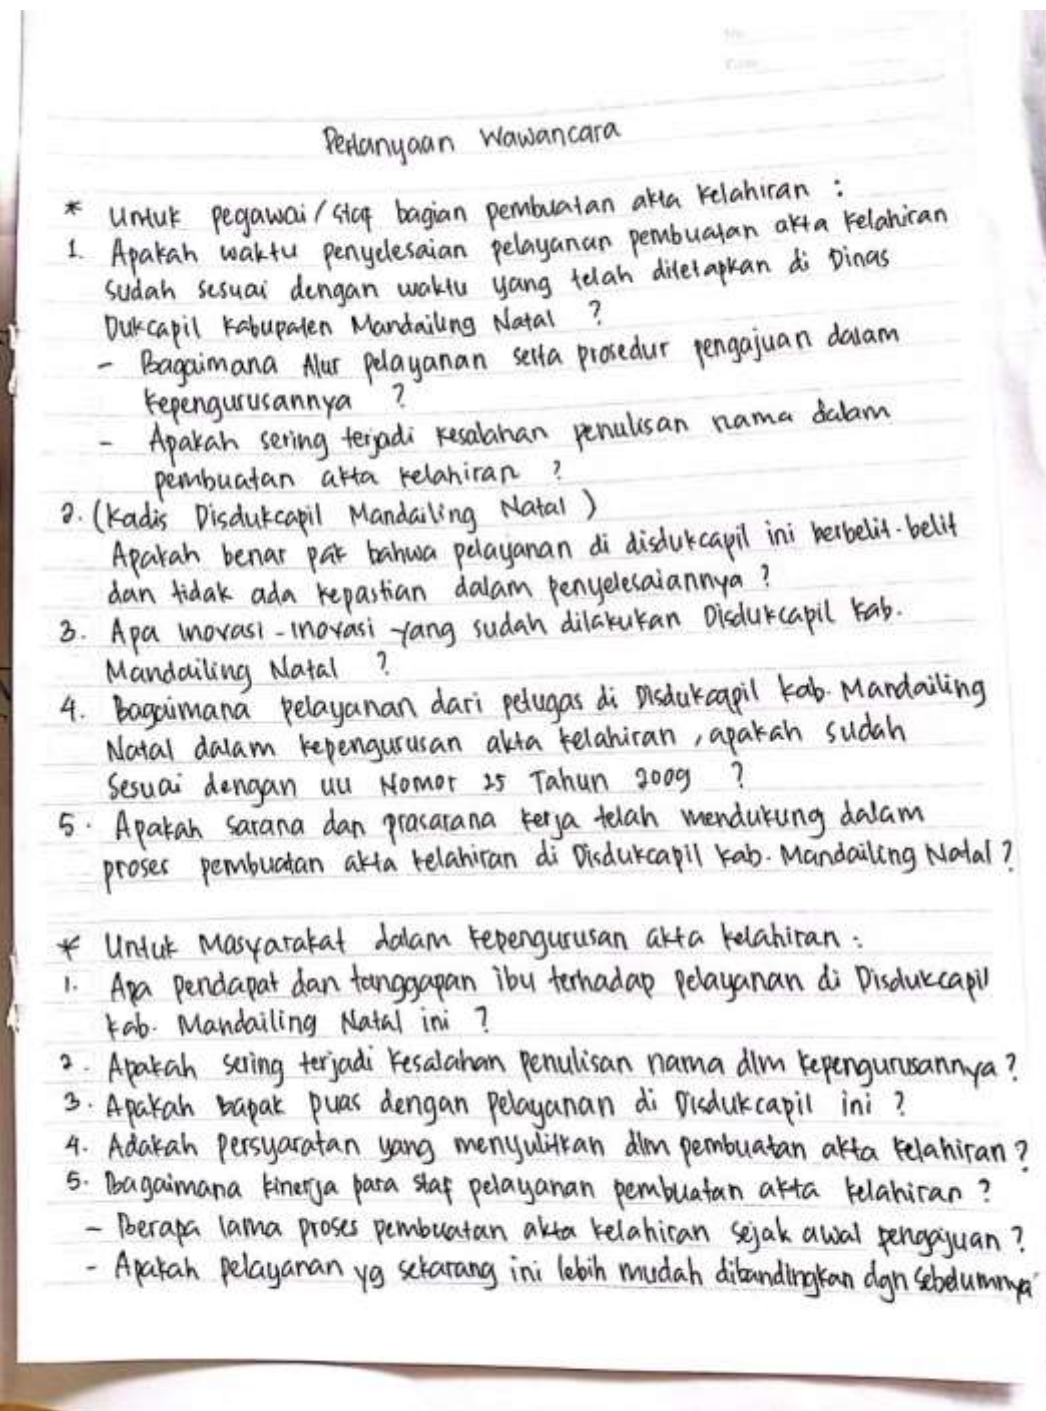 Pertanyaan Wawancara
* Untuk pegawai/staf bagian pembuatan akta kelahiran :
1. Apakah waktu penyelesaian pelayanan pembuatan akta kelahiran
sudah sesuai dengan waktu yang telah ditetapkan di Dinas
Dukcapil Kabupaten Mandailing Natal ?
- Bagaimana Alur pelayanan serta prosedur pengajuan dalam
kepengurusannya ?
- Apakah sering terjadi kesalahan penulisan nama dalam
pembuatan akta kelahiran ?
2. (Kadis Disdukcapil Mandailing Natal )
Apakah benar pak bahwa pelayanan di disdukcapil ini berbelit-belit
dan tidak ada kepastian dalam penyelesaiannya ?
3. Apa inovasi-inovasi yang sudah dilakukan Disdukcapil Kab.
Mandailing Natal ?
4. Bagaimana pelayanan dari petugas di Disdukcapil Kab. Mandailing
Natal dalam kepengurusan akta kelahiran , apakah sudah
Sesuai dengan UU Nomor 25 Tahun 2009 ?
5. Apakah sarana dan prasarana kerja telah mendukung dalam
proses pembuatan akta kelahiran di Disdukcapil Kab. Mandailing Natal ?
* Untuk Masyarakat dalam kepengurusan akta kelahiran :
1. Apa pendapat dan tanggapan ibu terhadap pelayanan di Disdukcapil
Kab. Mandailing Natal ini ?
2. Apakah sering terjadi kesalahan penulisan nama dlm kepengurusannya ?
3. Apakah bapak puas dengan pelayanan di Disdukcapil ini ?
4. Adakah persyaratan yang menyulitkan dlm pembuatan akta kelahiran ?
5. Bagaimana kinerja para staf pelayanan pembuatan akta kelahiran ?
- Berapa lama proses pembuatan akta kelahiran sejak awal pengajuan ?
- Apakah pelayanan yg sekarang ini lebih mudah dibandingkan dgn sebelumnya